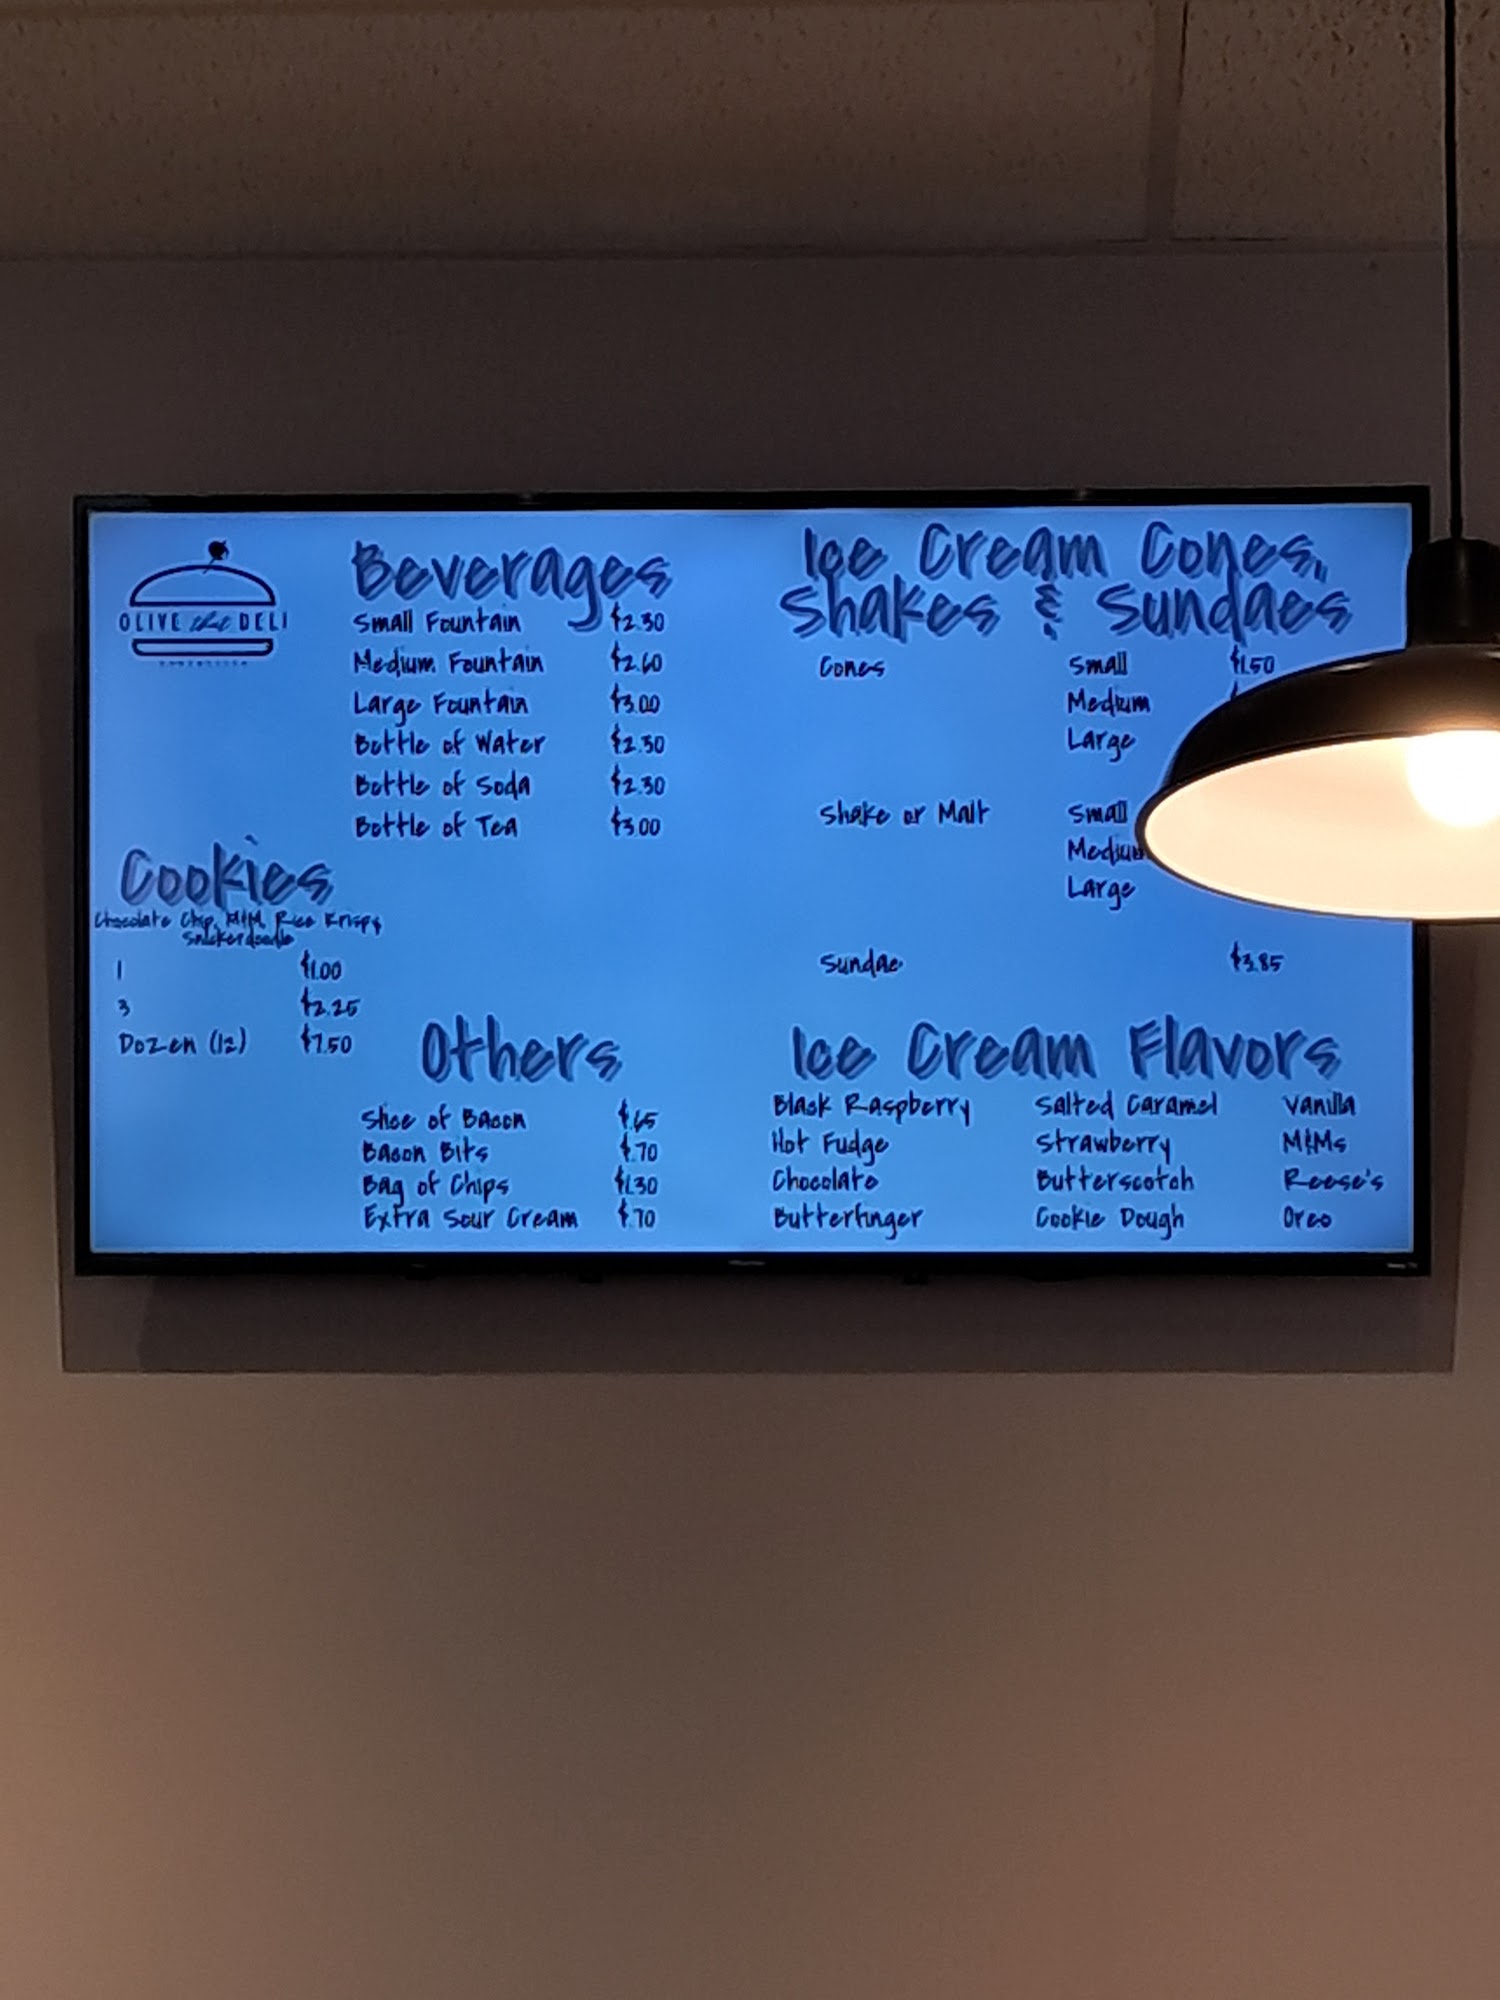 OLIVE that DELI
Beverages
Small Fountain $2.30
Medium Fountain $2.60
Large Fountain $3.00
Bottle of Water $2.30
Bottle of Soda $2.30
Bottle of Tea $3.00
Cookies
Chocolate Chip, M&M, Rice Krispy
Snickerdoodle
1 $1.00
3 $2.25
Dozen (12) $7.50
Others
Slice of Bacon $.65
Bacon Bits $.70
Bag of Chips $1.30
Extra Sour Cream $.70
Ice Cream Cones,
Shakes & Sundaes
Cones Small $1.50
Medium
Large
Shake or Malt Small
Medium
Large
Sundae $3.85
Ice Cream Flavors
Black Raspberry Salted Caramel Vanilla
Hot Fudge Strawberry M&Ms
Chocolate Butterscotch Reese's
Butterfinger Cookie Dough Oreo